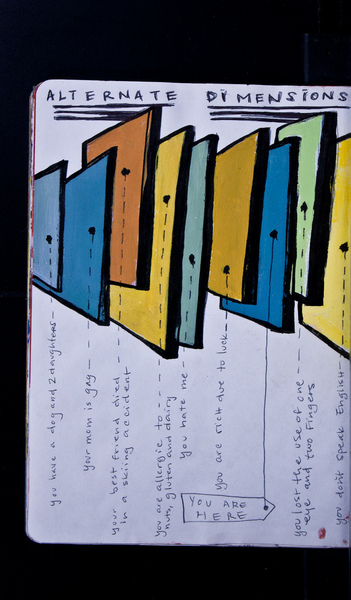 ALTERNATE DIMENSIONS
you have a dog and 2 daughters
your mom is gay
your best friend died
in a skiing accident
you are allergic to
nuts, gluten and dairy
you hate me
you are rich due to luck
YOU ARE
HERE
you lost the use of one
eye and two fingers
you don't speak English